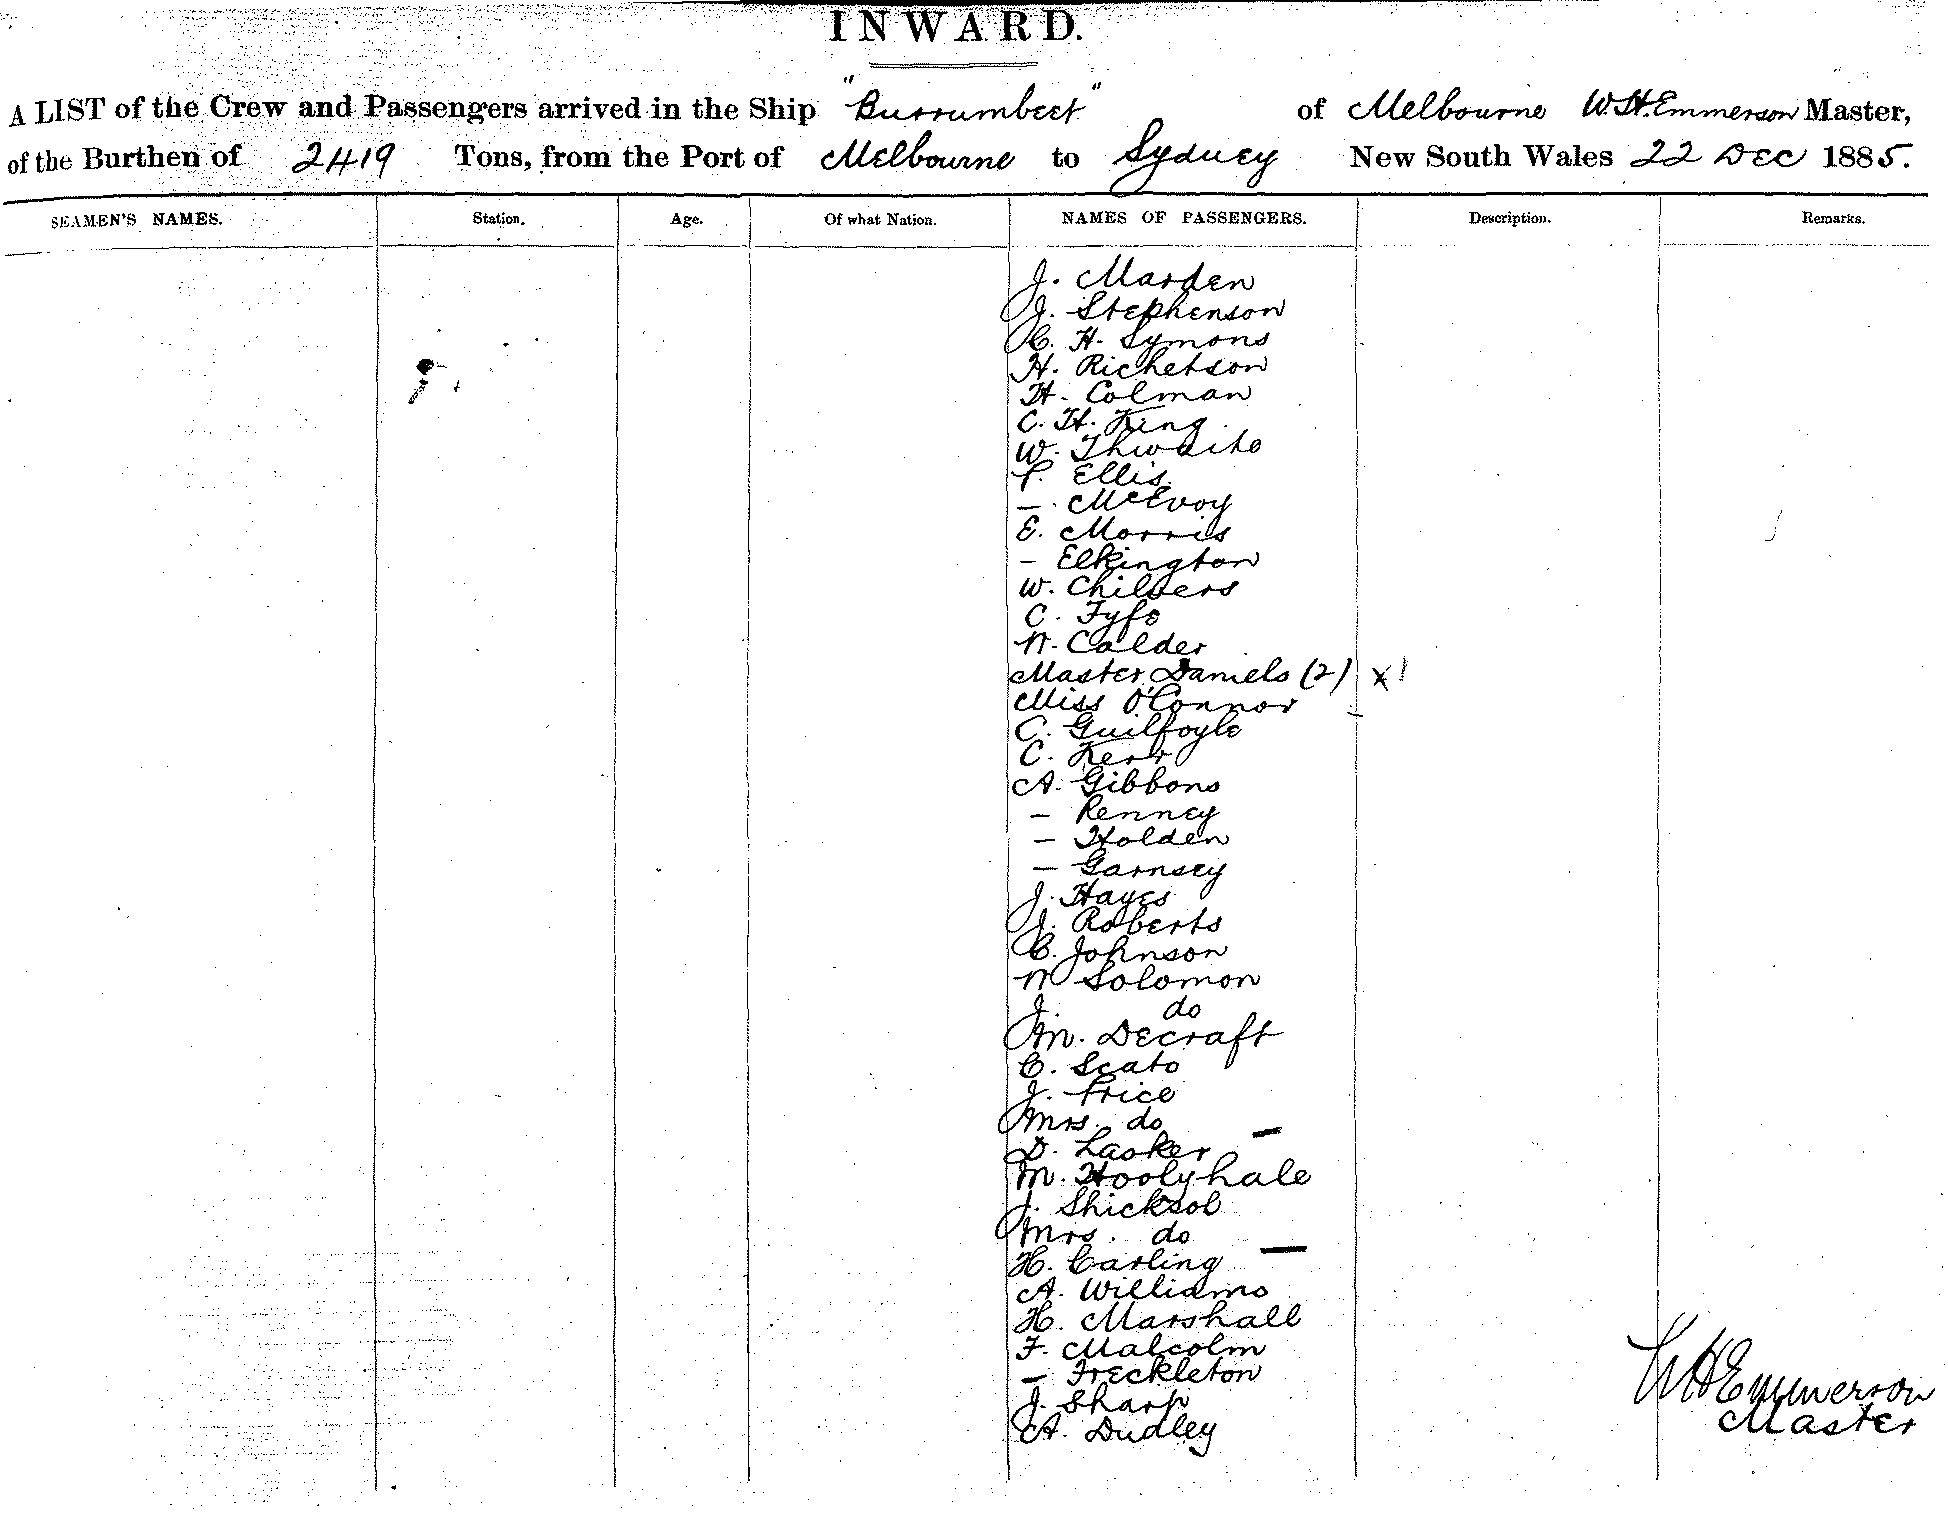 INWARD.
A LIST of the Crew and Passengers arrived in the Ship "Burrumbeet" of Melbourne W. H. Emmerson Master,
of the Burthen of 2419 Tons, from the Port of Melbourne to Sydney New South Wales 22 Dec 1885.
SEAMEN'S NAMES. Station. Age. Of what Nation. NAMES OF PASSENGERS. Description. Remarks.
J. Marden
J. Stephenson
C. H. Symons
H. Richetson
H. Colman
C. H. King
W. Thwaite
P. Ellis
— McEvoy
E. Morris
— Elkington
W. Chilvers
C. Fyfe
N. Calder
Master Daniels (2) x 1
Miss O'Connor
C. Guilfoyle
C. Kerr
A. Gibbons
— Renney
— Holden
— Garnsey
J. Hayes
J. Roberts
C. Johnson
N Solomon
J. do
M. Decraft
C. Scato
J. Price
Mrs. do —
D. Lasker
M. Hoolyhale
J. Shicksol
Mrs. do —
H. Carling
A. Williams
H. Marshall
F. Malcolm
— Freckleton
J. Sharp
A. Dudley
W H Emmerson
Master